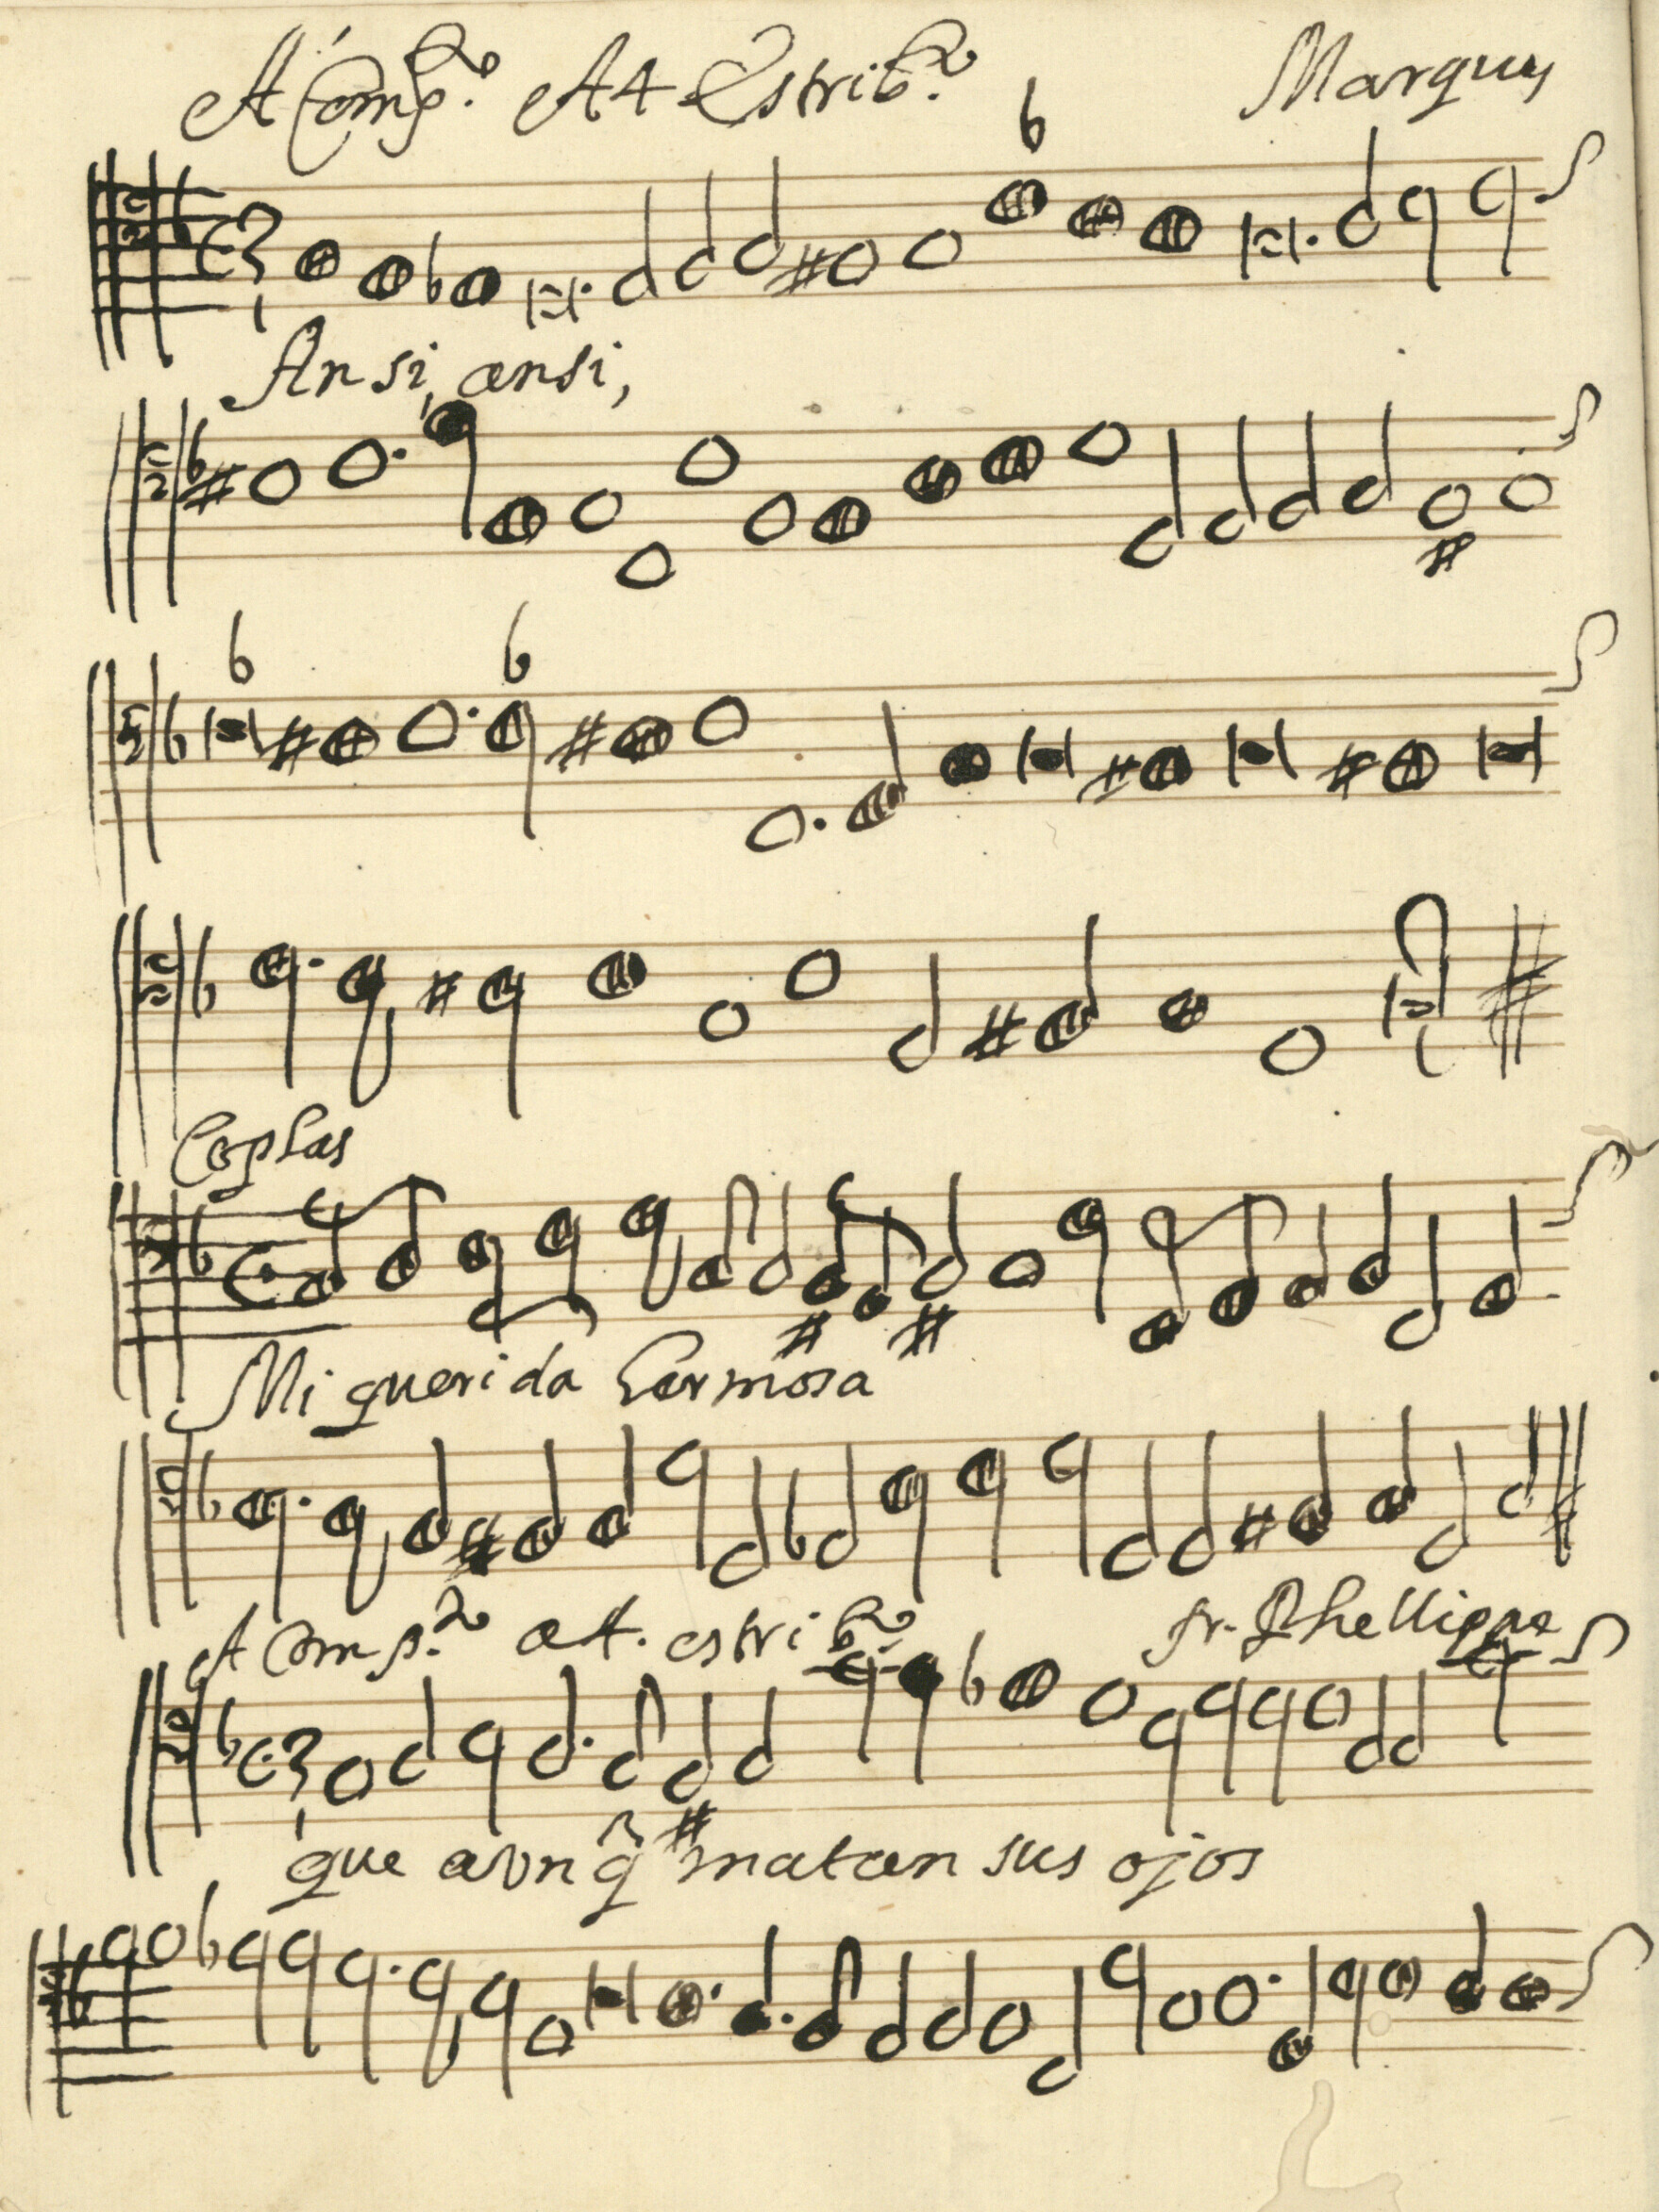 A Comp.º A4 Estrib.º Marques
Ansi, ansi,
Coplas
Mi querida hermosa
A Comp.º a4. estrib.º fr. Phellipe
que avnq̃ matan sus ojos